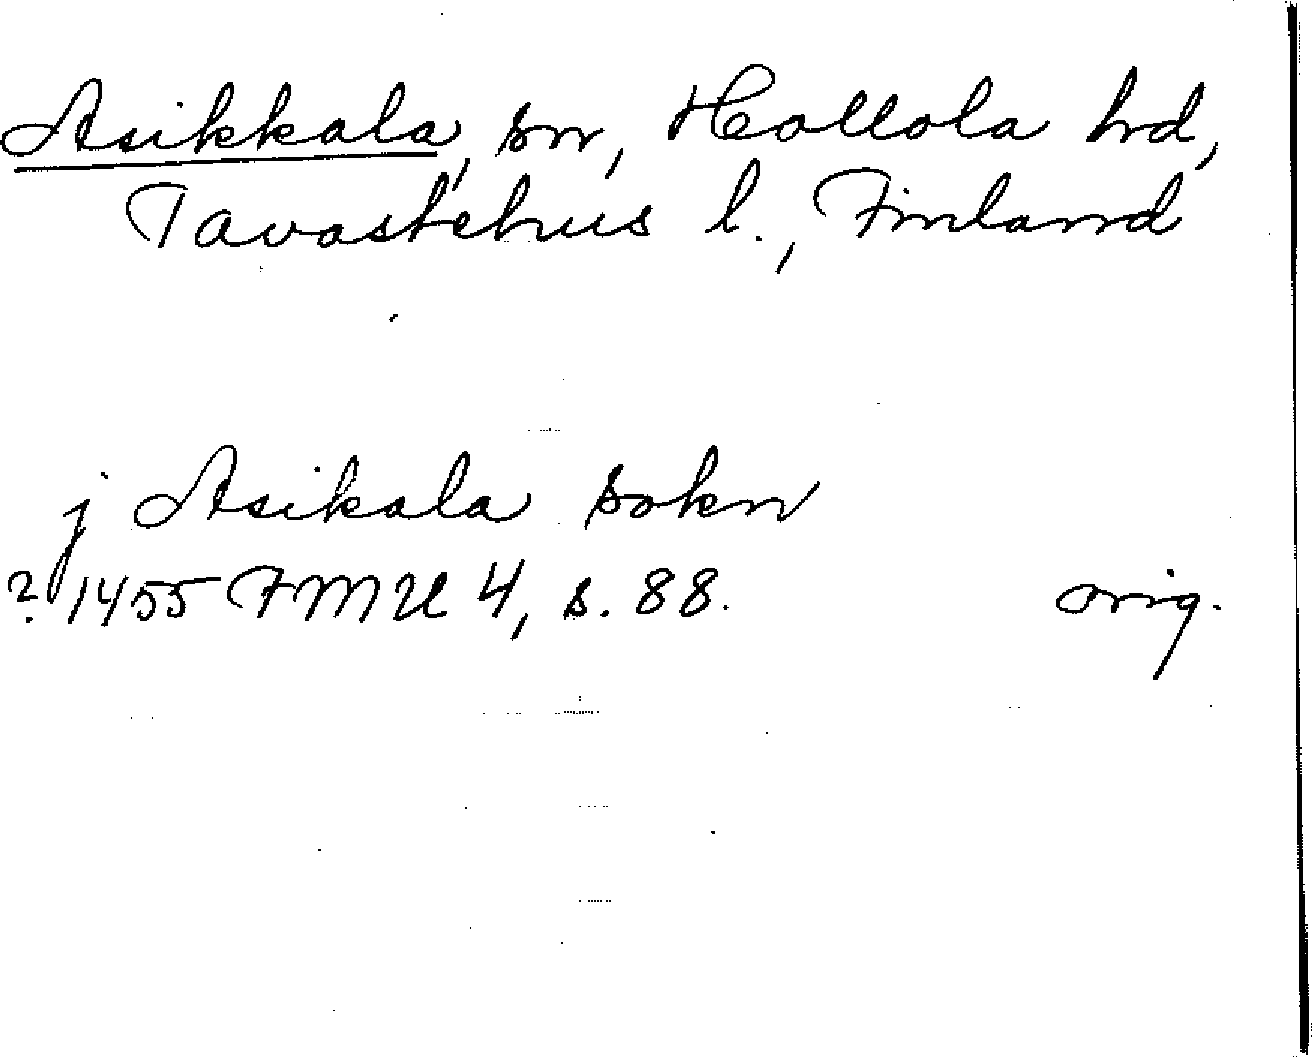 Asikkala, sn, Hollola hd,
Tavastehus l., Finland
j Asikala sokn
?1455 FMU 4, s. 88. orig.